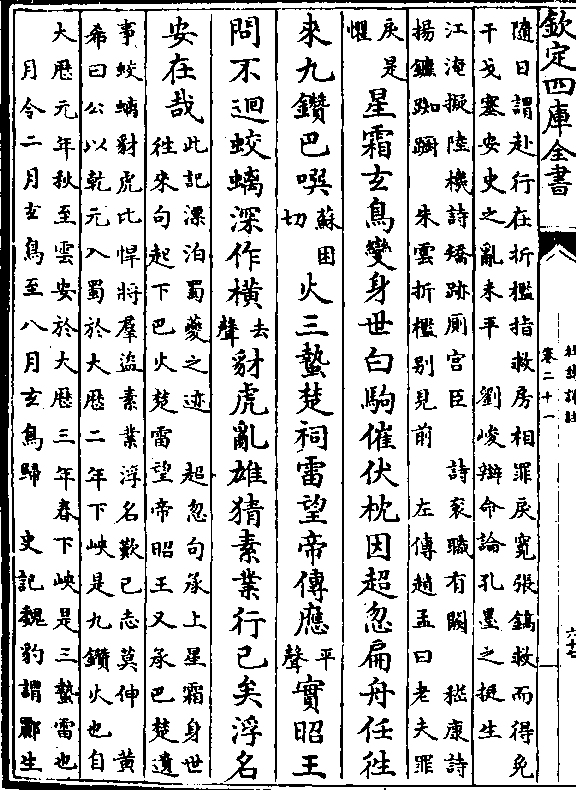 欽定四庫全書
杜詩詳註
卷二十一
隨日謂赴行在折檻指救房相罪戾寬張鎬救而得免
干戈塞安史之亂未平 劉峻辯命論孔墨之挺生
江淹擬陸機詩矯跡厠宮臣 詩袞職有闕 嵇康詩
揚鑣踟躕 朱雲折檻别見前 左傳趙孟曰老夫罪
戾是
懼
星霜玄鳥變身世白駒催伏枕因超忽扁舟任往
來九鑽巴噀
蘇困
切
火三蟄楚祠雷望帝傳應
平
聲
實昭王
問不迴蛟螭深作橫
去
聲
豺虎亂雄猜素業行已矣浮名
安在哉
此記漂泊蜀夔之迹 超忽句承上星霜身世
往來句起下巴火楚雷望帝昭王又承巴楚遺
事蛟螭豺虎比悍將羣盜素業浮名歎已志莫伸 黄
希曰公以乾元入蜀於大厯二年下峽是九鑽火也自
大厯元年秋至雲安於大厯三年春下峽是三蟄雷也
月令二月玄鳥至八月玄鳥歸 史記魏豹謂酈生